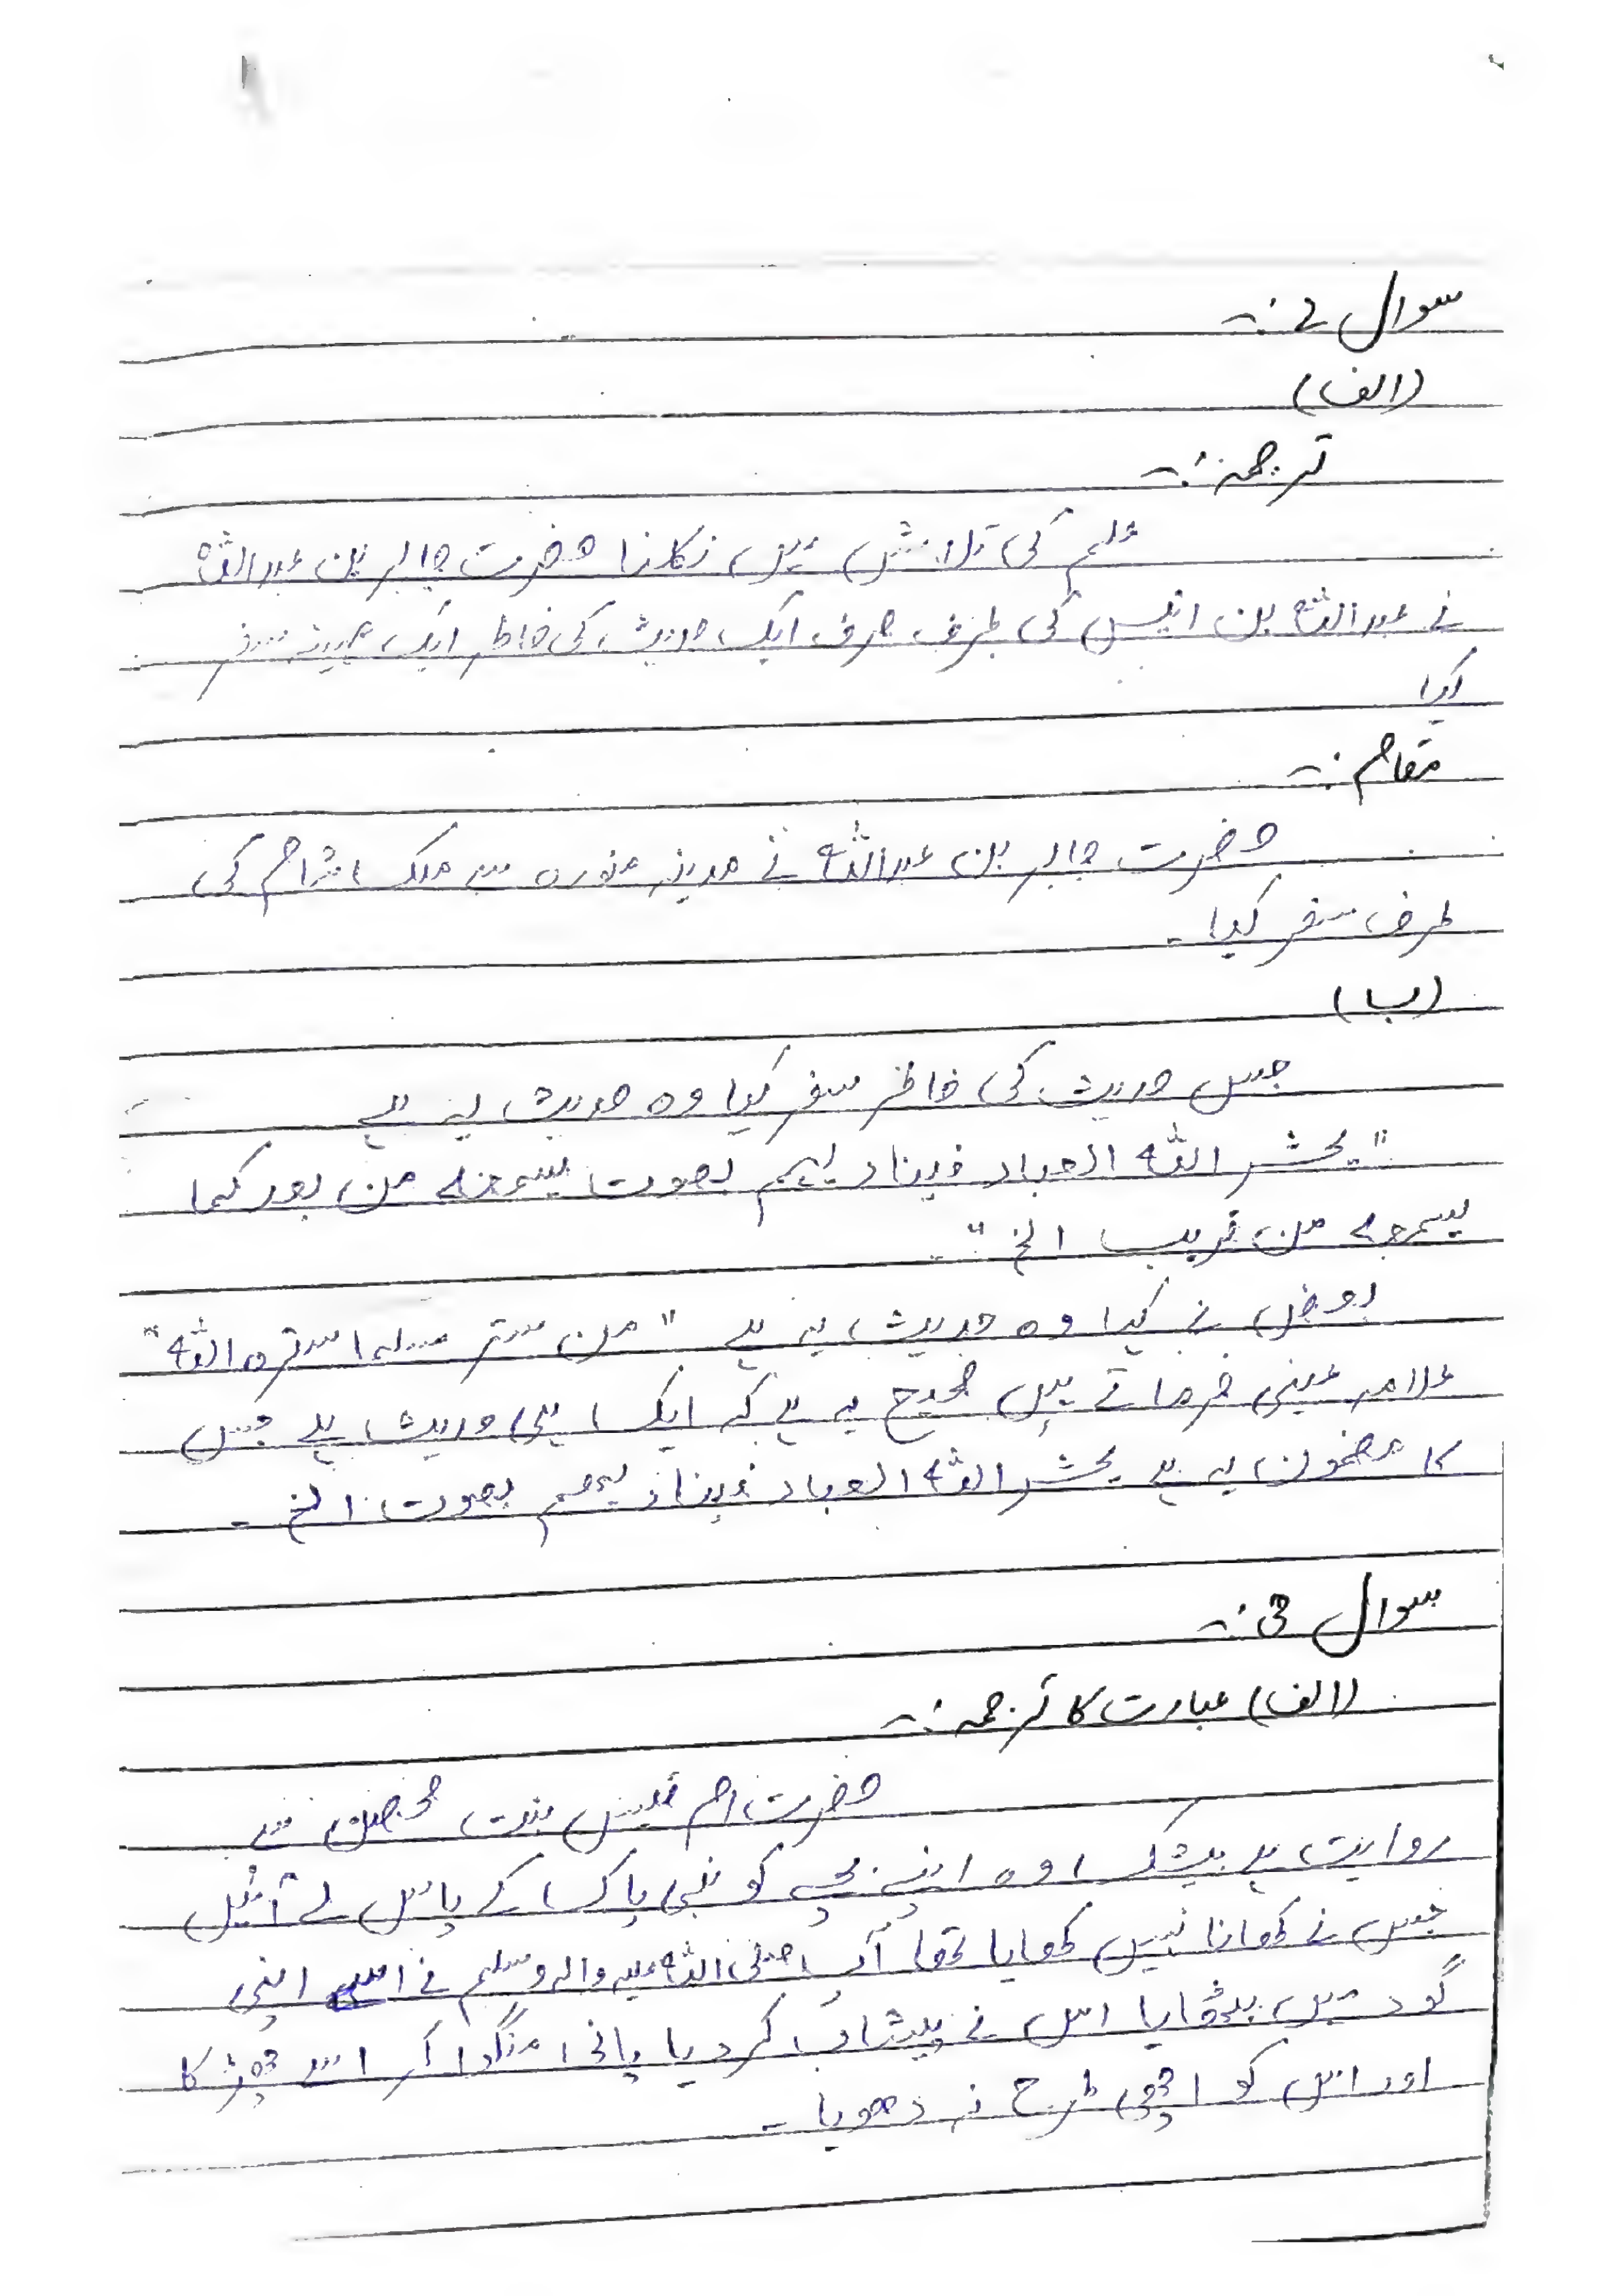 سوال 2 :-
(الف)
ترجمہ :-
علم کی تلاش میں نکلنا حضرت جابر بن عبداللہ
نے عبداللہ بن انیس کی طرف صرف ایک حدیث کی خاطر ایک مہینہ سفر
کیا
مقام :-
حضرت جابر بن عبداللہ نے مدینہ منورہ سے ملک شام کی
طرف سفر کیا -
(ب)
جس حدیث کی خاطر سفر کیا وہ حدیث یہ ہے
"یحشر اللہ العباد فینادیہم بصوت یسمعہ من بعد کما
یسمعہ من قریب الخ" -
بعض نے کہا وہ حدیث یہ ہے "من ستر مسلما سترہ اللہ"
علامہ عینی فرماتے ہیں صحیح یہ ہے کہ ایک ایسی حدیث ہے جس
کا مضمون یہ ہے یحشر اللہ العباد فینادیہم بصوت الخ -
سوال 3 :-
(الف) عبارت کا ترجمہ :-
حضرت ام قیس بنت محصن سے
روایت ہے بیشک وہ اپنے بچے کو نبی پاک کے پاس لے آئیں
جس نے کھانا نہیں کھایا تھا آپ صلی اللہ علیہ والہ وسلم نے اسے اپنی
گود میں بیٹھایا اس نے پیشاب کردیا پانی منگوا کر اسے چھڑکا
اور اس کو اچھی طرح نہ دھویا -